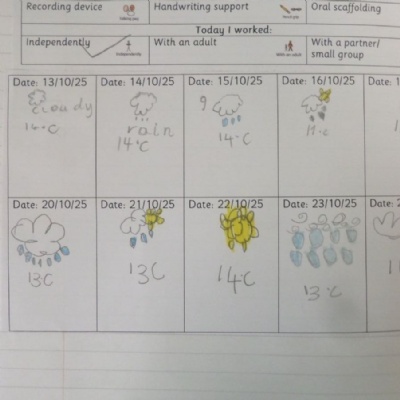 Recording device Handwriting support Oral scaffolding
Today I worked:
Independently With an adult With a partner/
small group
Date: 13/10/25 Date: 14/10/25 Date: 15/10/25 Date: 16/10/25
cloudy
14°C
rain
14°C
9
14°C
Date: 20/10/25 Date: 21/10/25 Date: 22/10/25 Date: 23/10/25
13C 13C 14°C 13°C